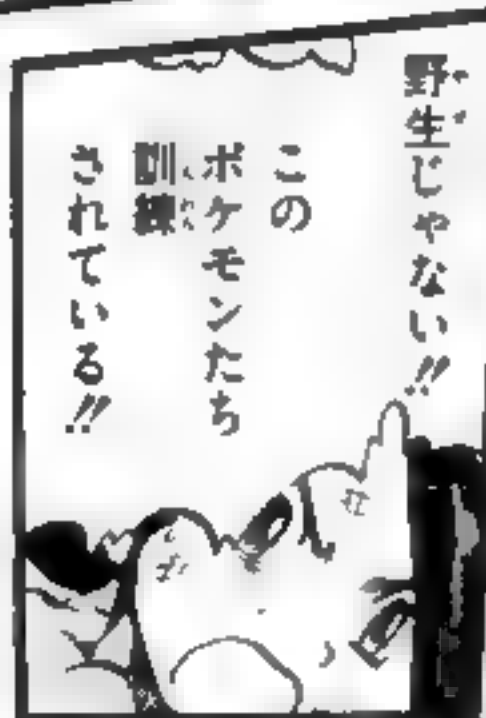 野生じゃない!!
この
ポケモンたち
訓練
されている!!